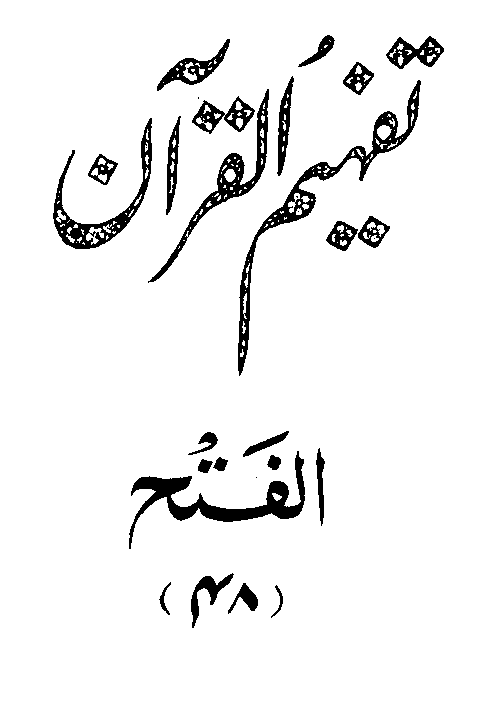 تفہیمُ القرآن
الفَتحُ
(۴۸)